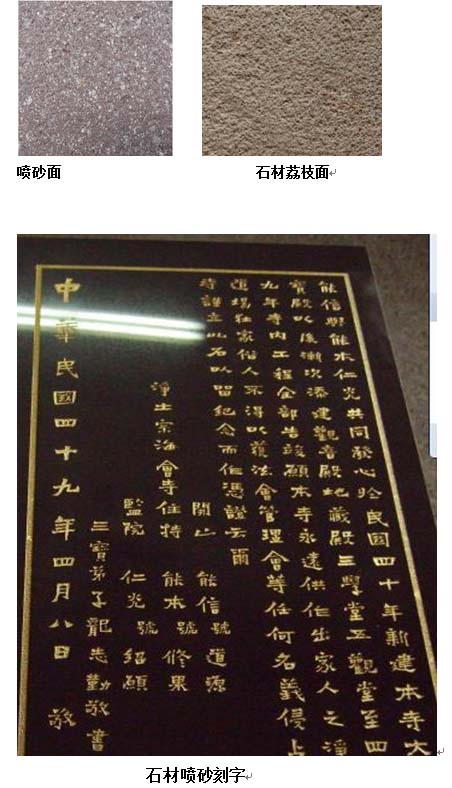 喷砂面
石材荔枝面
能信與能本仁光共同發心於民國四十年新建本寺大
寶殿以後漸次添建觀音殿地藏殿三學堂五觀堂至四
九年寺內工程全部告竣願本寺永遠供作出家人之淨
道場在家俗人不得以護法會管理會等任何名義侵占
特謹立此石以留紀念而作憑證云爾
開山 能信號道源
淨土宗海會寺住持 能本號修果
監院 仁光號紹願
三寶弟子龍志勤敬書
中華民國四十九年四月八日 敬
石材喷砂刻字